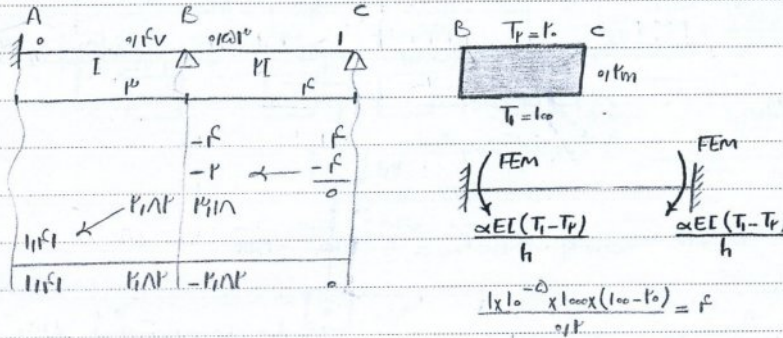 A B C
۰ ۰/۴۷ ۰/۵۳ ۱
I ۲I
۳ ۴
-۴ ۴
-۲ ← -۴
۰
۲/۸۲ ۳/۱۸
۱/۴۱ ←
۱/۴۱ ۲/۸۲ -۲/۸۲ ۰
B T۲ = ۲۰ C
۰/۲m
T۱ = ۱۰۰
FEM FEM
αEI(T۱-T۲) αEI(T۱-T۲)
h h
۱×۱۰^-۵×۱۰۰۰×(۱۰۰-۲۰) = ۴
۰/۲